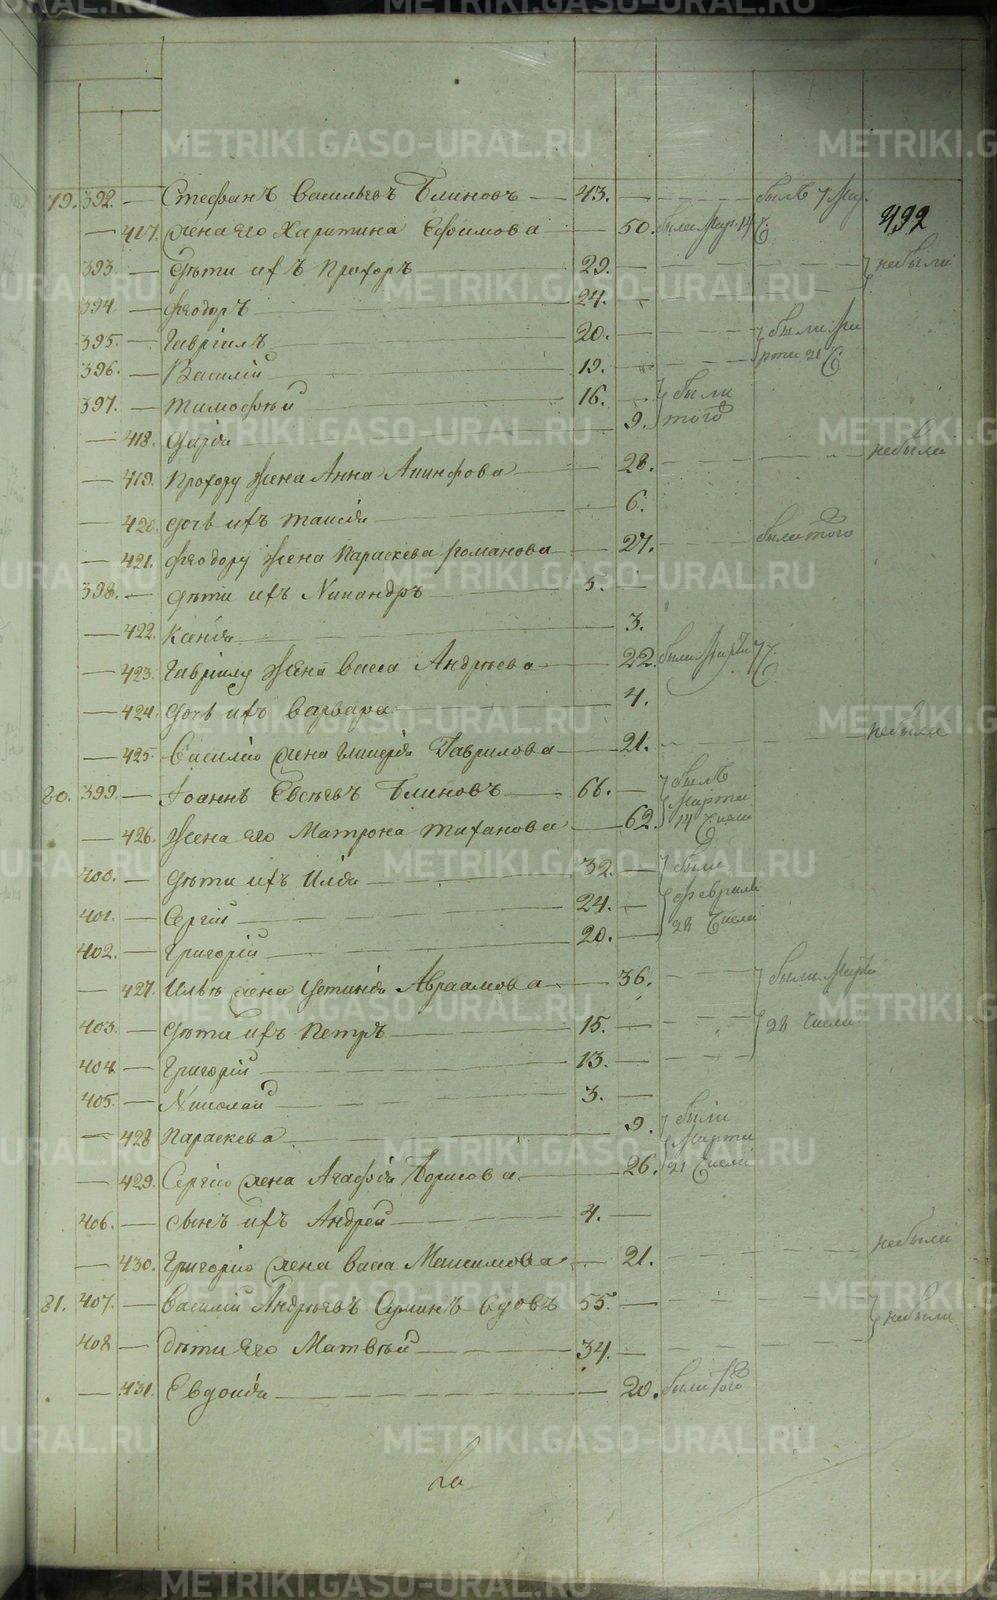 79. 392. — Стефанъ Васильевъ Блиновъ — 43. — былъ 7 Мар.
492
— 417. жена его Харитина Ефимова — 50. были Мар. 14 Ч.
393. — дѣти ихъ Прохоръ — 29. — небыли
394. — Феодоръ — 24. —
395. — Гавріилъ — 20. — были Ма
396. — Василій — 19. — рта 21 Ч.
397. — Тимофѣй — 16. — были
— 418. Дарія — 9. того
— 419. Прохору жена Анна Акинфова — 28. — небыли
— 420. дочь ихъ Таисія — 6.
— 421. Феодору жена Параскева Романова — 27. — были того
398. — дѣти ихъ Никандръ — 5. —
— 422. Ксенія — 3.
— 423. Гаврилу жена Васса Андрѣева — 22. были Марта 7 Ч.
— 424. дочь ихъ Варвара — 4.
— 425. Василію жена Гликерія Гаврилова — 21. — небыли
80. 399. — Іоаннъ Евсѣевъ Блиновъ — 66. — былъ
Марта
— 426. жена его Матрона Тиханова — 62. 14 Числа
400. — дѣти ихъ Илія — 32. — были
401. — Сергій — 24. — Февраля
402. — Григорій — 20. — 28 Числа
— 427. Ильѣ жена Устинія Авраамова — 36. — были Марта
403. — дѣти ихъ Петръ — 15. — 28 Числа
404. — Григорій — 13. —
405. — Николай — 3. —
— 428. Параскева — 9. были
Марта
— 429. Сергію жена Агафія Борисова — 26. 21 Числа
406. — сынъ ихъ Андрей — 4. —
— 430. Григорію жена Васса Максимова — 21. — небыли
81. 407. — Василій Андрѣевъ Суминъ вдовъ 55. — небыли
408 — дѣти его Матвѣй — 34. —
— 431. Евдокія — 20. были того
METRIKI.GASO-URAL.RU